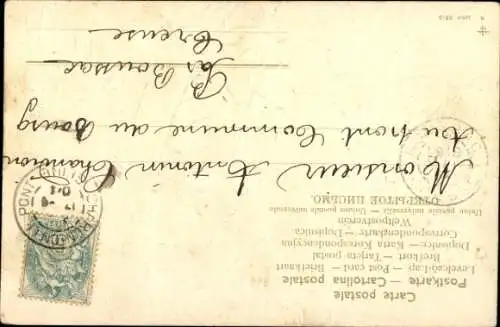 Carte postale
Postkarte — Cartolina postale
Levelező-Lap — Post card — Briefkaart
Brefkort — Tarjeta postal
Dopisnice — Karta Korespondencyjna
Correspondenzkarte — Dopisnica
Weltpostverein
Union postale universelle — Unión postal universal
ОТКРЫТОЕ ПИСЬМО.
Monsieur Antonin Chandron
Au mont Commune du Bourg
Par Boussac
Creuse